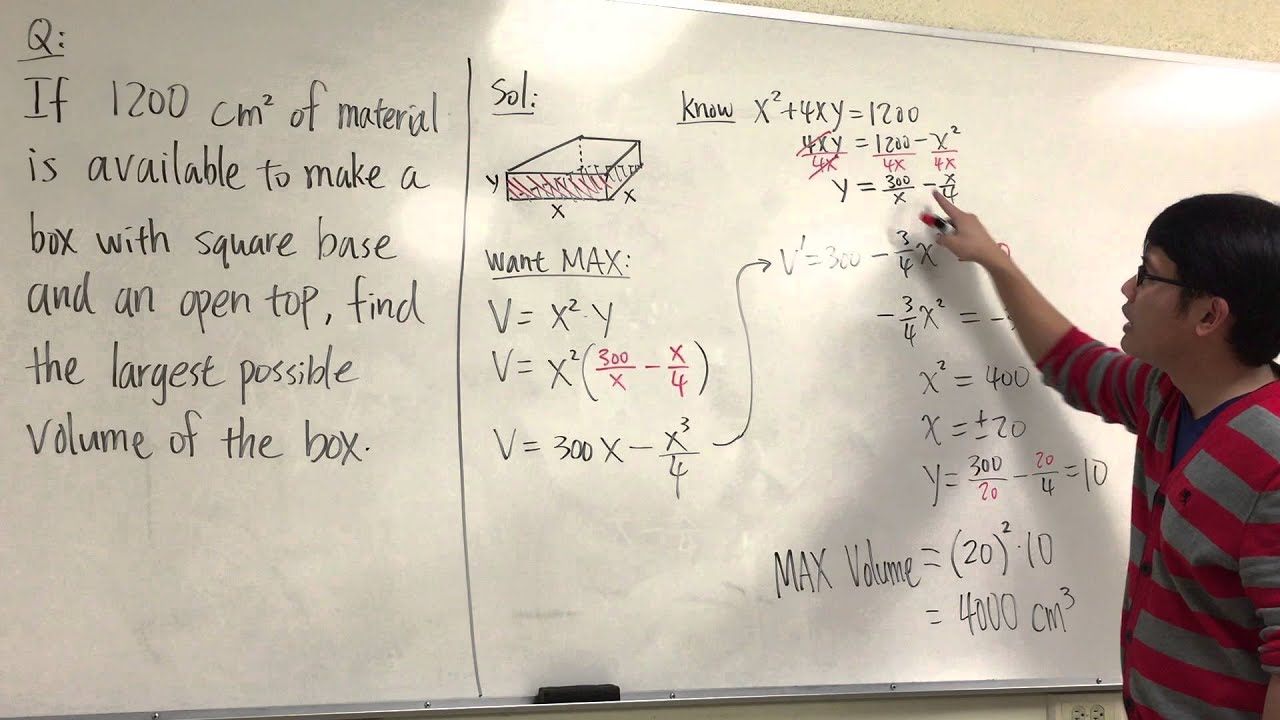 Q:
If 1200 cm² of material
is available to make a
box with square base
and an open top, find
the largest possible
volume of the box.
Sol:
y
x
x
Want MAX:
V = x²·y
V = x²(300/x − x/4)
V = 300x − x³/4
Know x²+4xy=1200
4xy/4x = 1200/4x − x²/4x
y = 300/x − x/4
V' = 300 − 3/4 x²
−3/4 x² = −
x² = 400
x = ±20
y = 300/20 − 20/4 = 10
MAX Volume = (20)²·10
= 4000 cm³